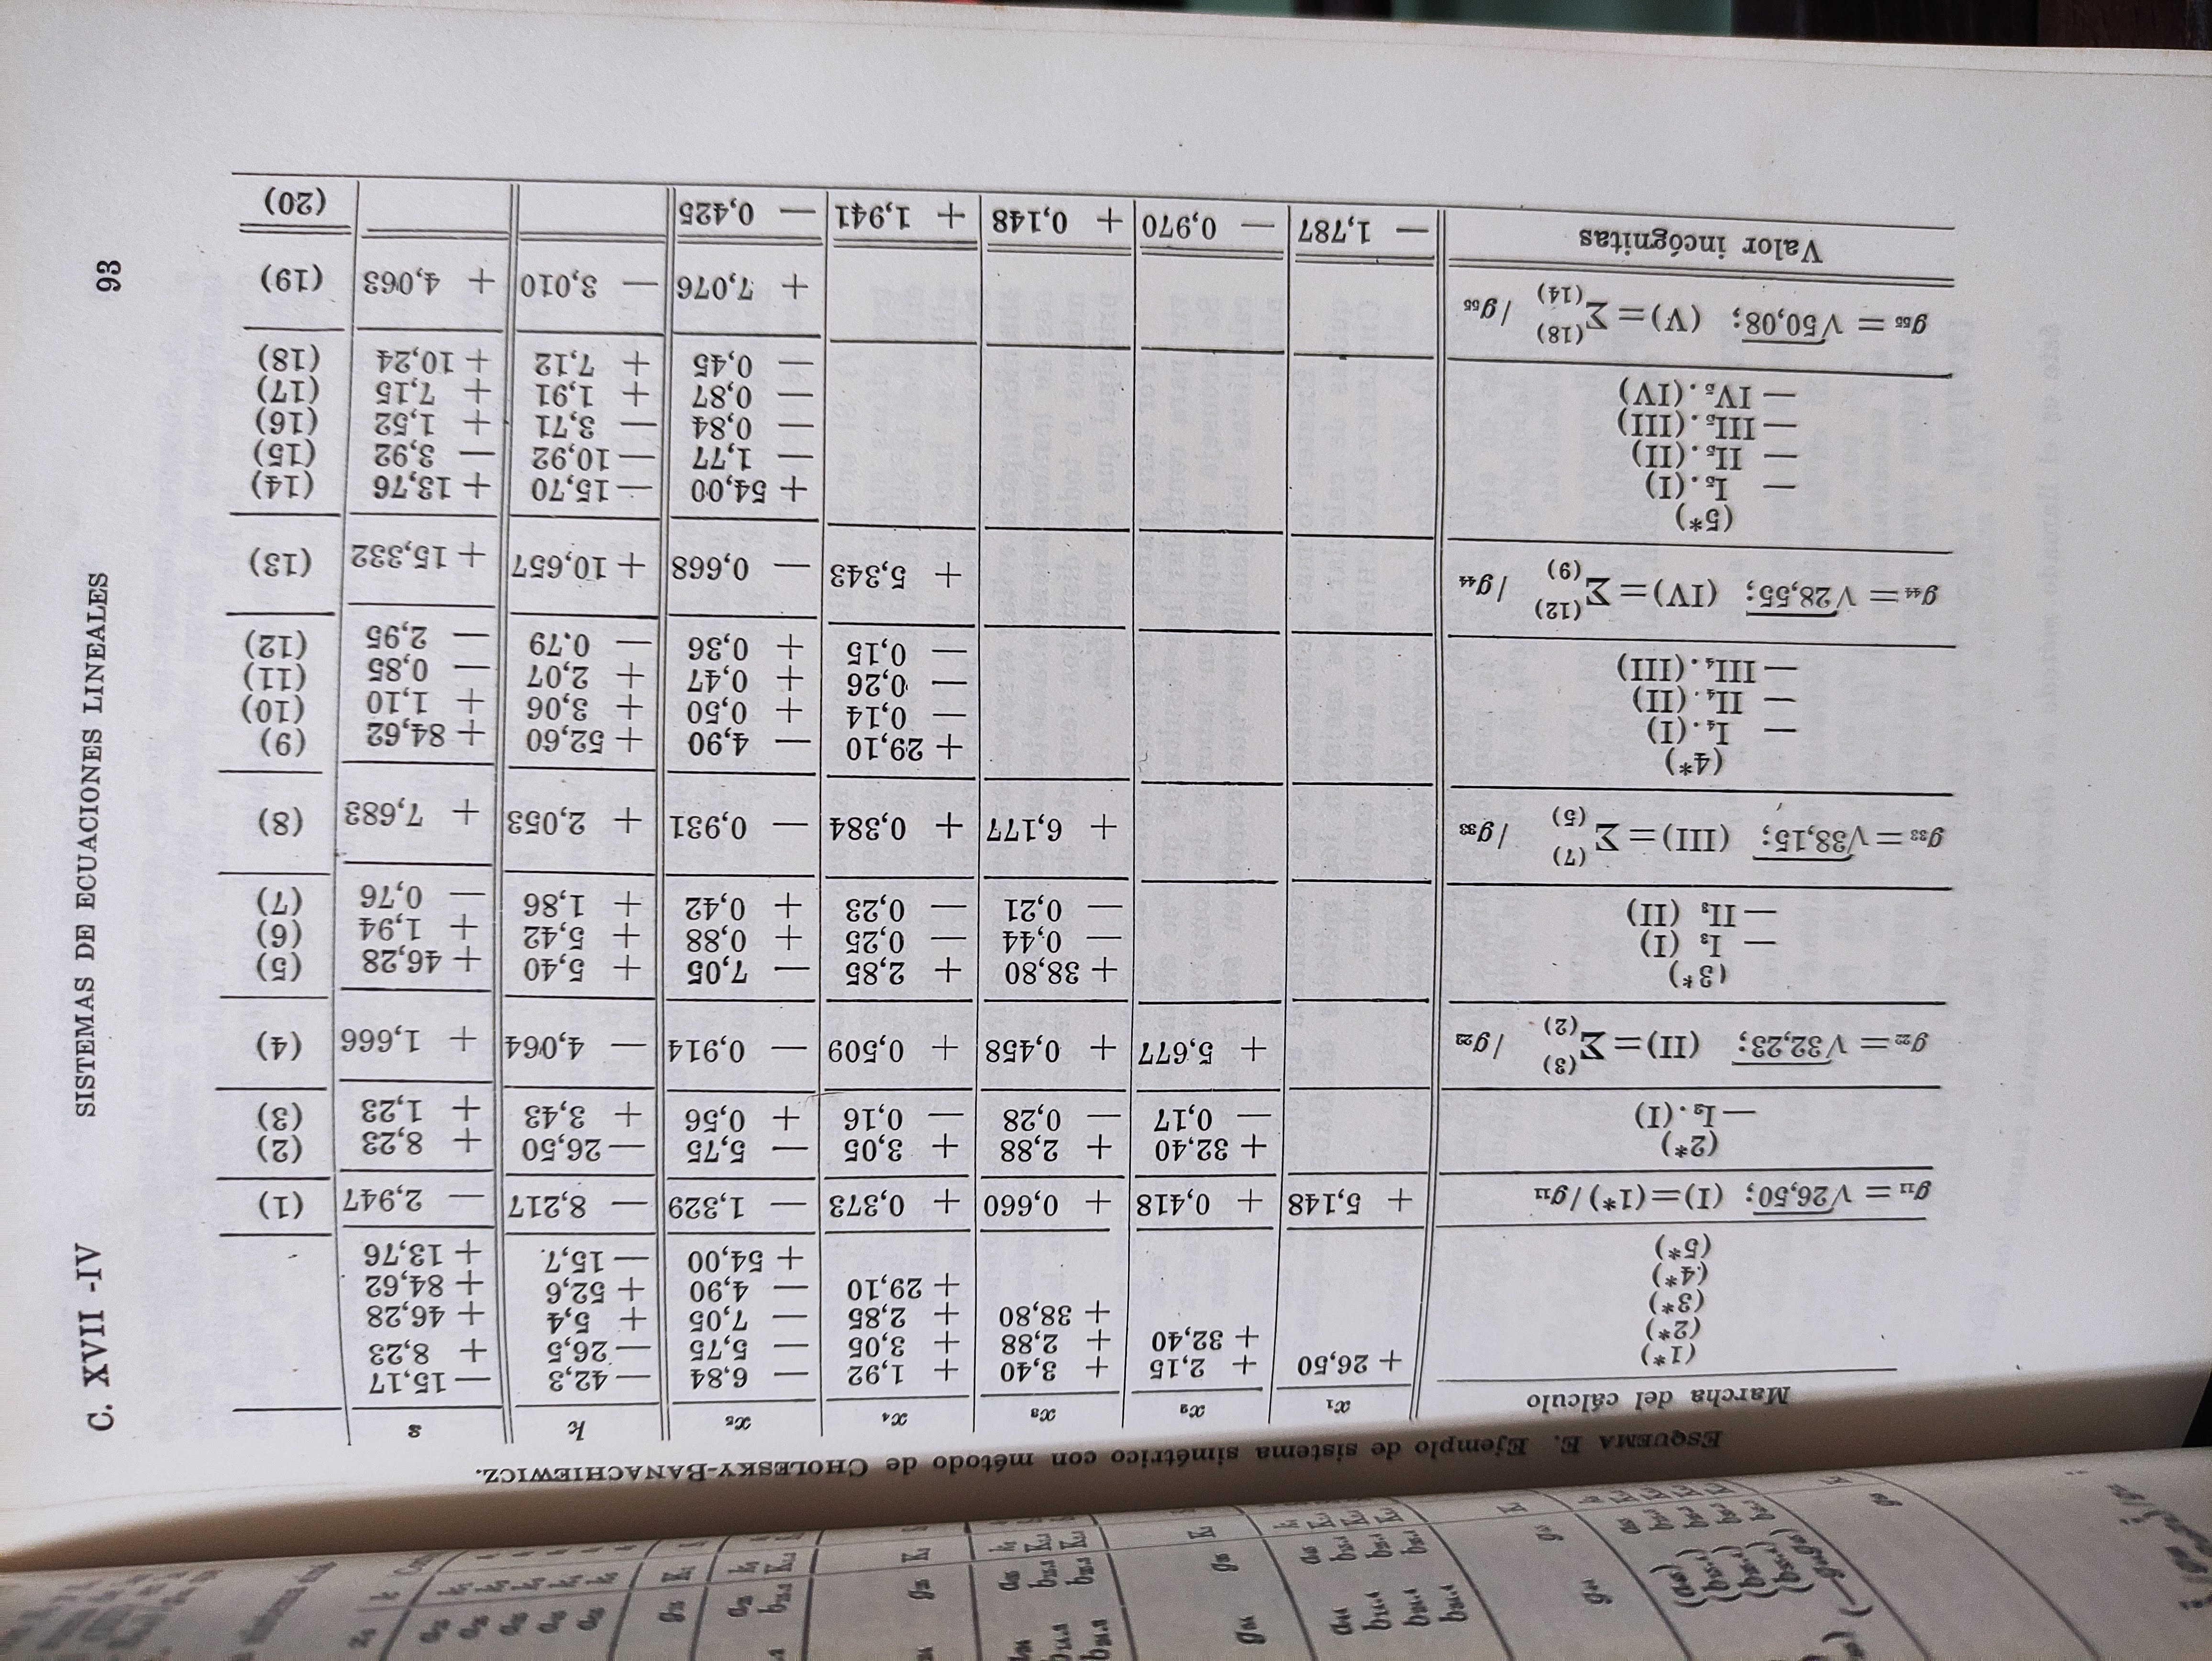 C. XVII -IV SISTEMAS DE ECUACIONES LINEALES 93
ESQUEMA E. Ejemplo de sistema simétrico con método de CHOLESKY-BANACHIEWICZ.
Marcha del cálculo x₁ x₂ x₃ x₄ x₅ k s
(1*) + 26,50 + 2,15 + 3,40 + 1,92 — 6,84 — 42,3 — 15,17
(2*) + 32,40 + 2,88 + 3,05 — 5,75 — 26,5 + 8,23
(3*) + 38,80 + 2,85 — 7,05 + 5,4 + 46,28
(4*) + 29,10 — 4,90 + 52,6 + 84,62
(5*) + 54,00 — 15,7 + 13,76
g₁₁ = √26,50; (I)=(1*)/g₁₁ + 5,148 + 0,418 + 0,660 + 0,373 — 1,329 — 8,217 — 2,947 (1)
(2*) + 32,40 + 2,88 + 3,05 — 5,75 — 26,50 + 8,23 (2)
— I₂.(I) — 0,17 — 0,28 — 0,16 + 0,56 + 3,43 + 1,23 (3)
g₂₂ = √32,23; (II)=Σ(2)(3) /g₂₂ + 5,677 + 0,458 + 0,509 — 0,914 — 4,064 + 1,666 (4)
(3*) + 38,80 + 2,85 — 7,05 + 5,40 + 46,28 (5)
— I₃ (I) — 0,44 — 0,25 + 0,88 + 5,42 + 1,94 (6)
— II₃ (II) — 0,21 — 0,23 + 0,42 + 1,86 — 0,76 (7)
g₃₃ = √38,15; (III)=Σ(5)(7) /g₃₃ + 6,177 + 0,384 — 0,931 + 2,053 + 7,683 (8)
(4*) + 29,10 — 4,90 + 52,60 + 84,62 (9)
— I₄.(I) — 0,14 + 0,50 + 3,06 + 1,10 (10)
— II₄.(II) — 0,26 + 0,47 + 2,07 — 0,85 (11)
— III₄.(III) — 0,15 + 0,36 — 0.79 — 2,95 (12)
g₄₄ = √28,55; (IV)=Σ(9)(12) /g₄₄ + 5,343 — 0,668 + 10,657 + 15,332 (13)
(5*) + 54,00 — 15,70 + 13,76 (14)
— I₅.(I) — 1,77 — 10,92 — 3,92 (15)
— II₅.(II) — 0,84 — 3,71 + 1,52 (16)
— III₅.(III) — 0,87 + 1,91 + 7,15 (17)
— IV₅.(IV) — 0,45 + 7,12 + 10,24 (18)
g₅₅ = √50,08; (V)=Σ(14)(18) /g₅₅ + 7,076 — 3,010 + 4,063 (19)
Valor incógnitas — 1,787 — 0,970 + 0,148 + 1,941 — 0,425 (20)